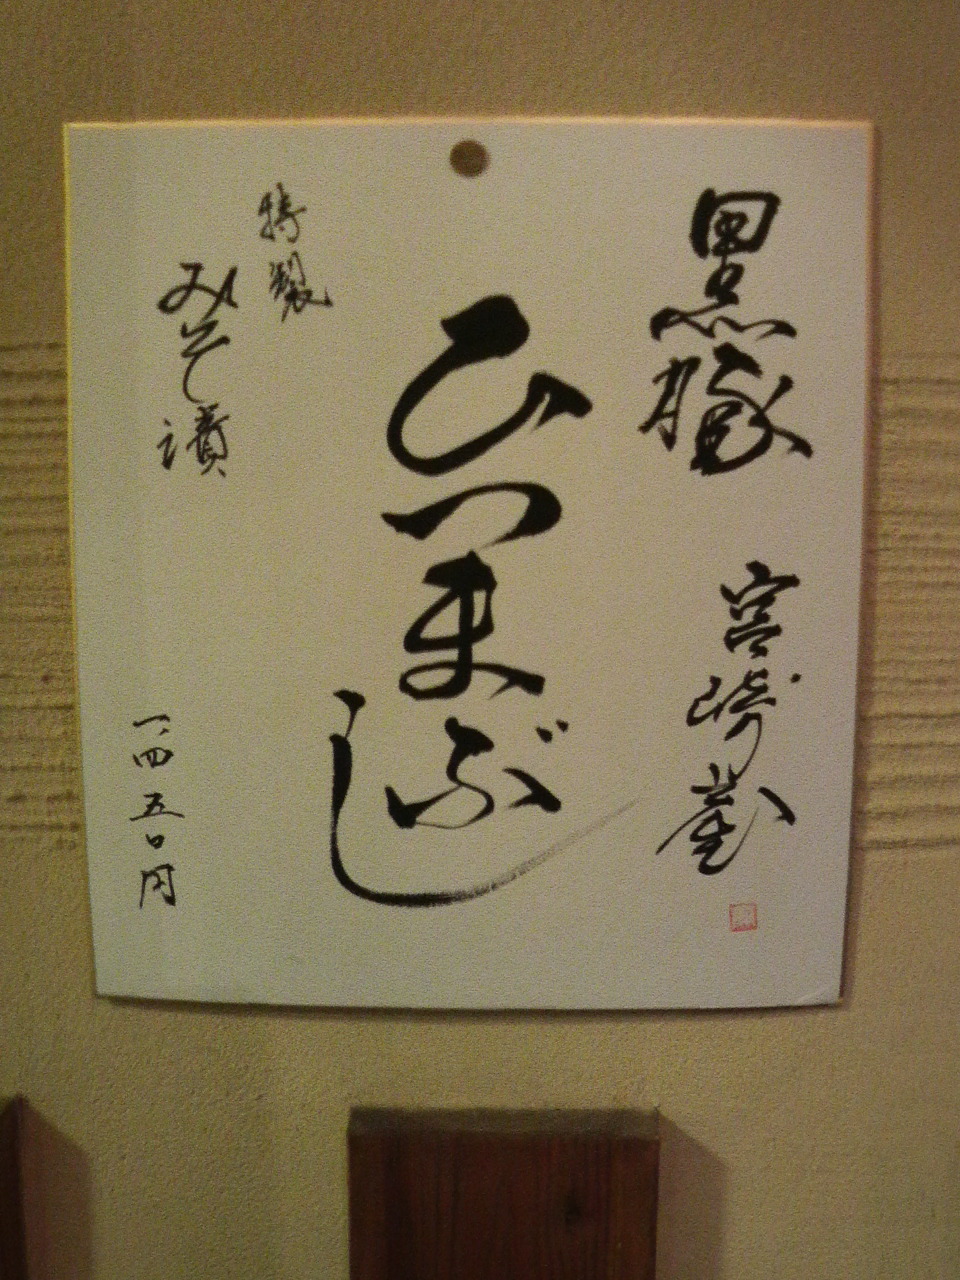 黒豚
宮崎産
ひつまぶし
特製
みそ漬
一、四五〇円